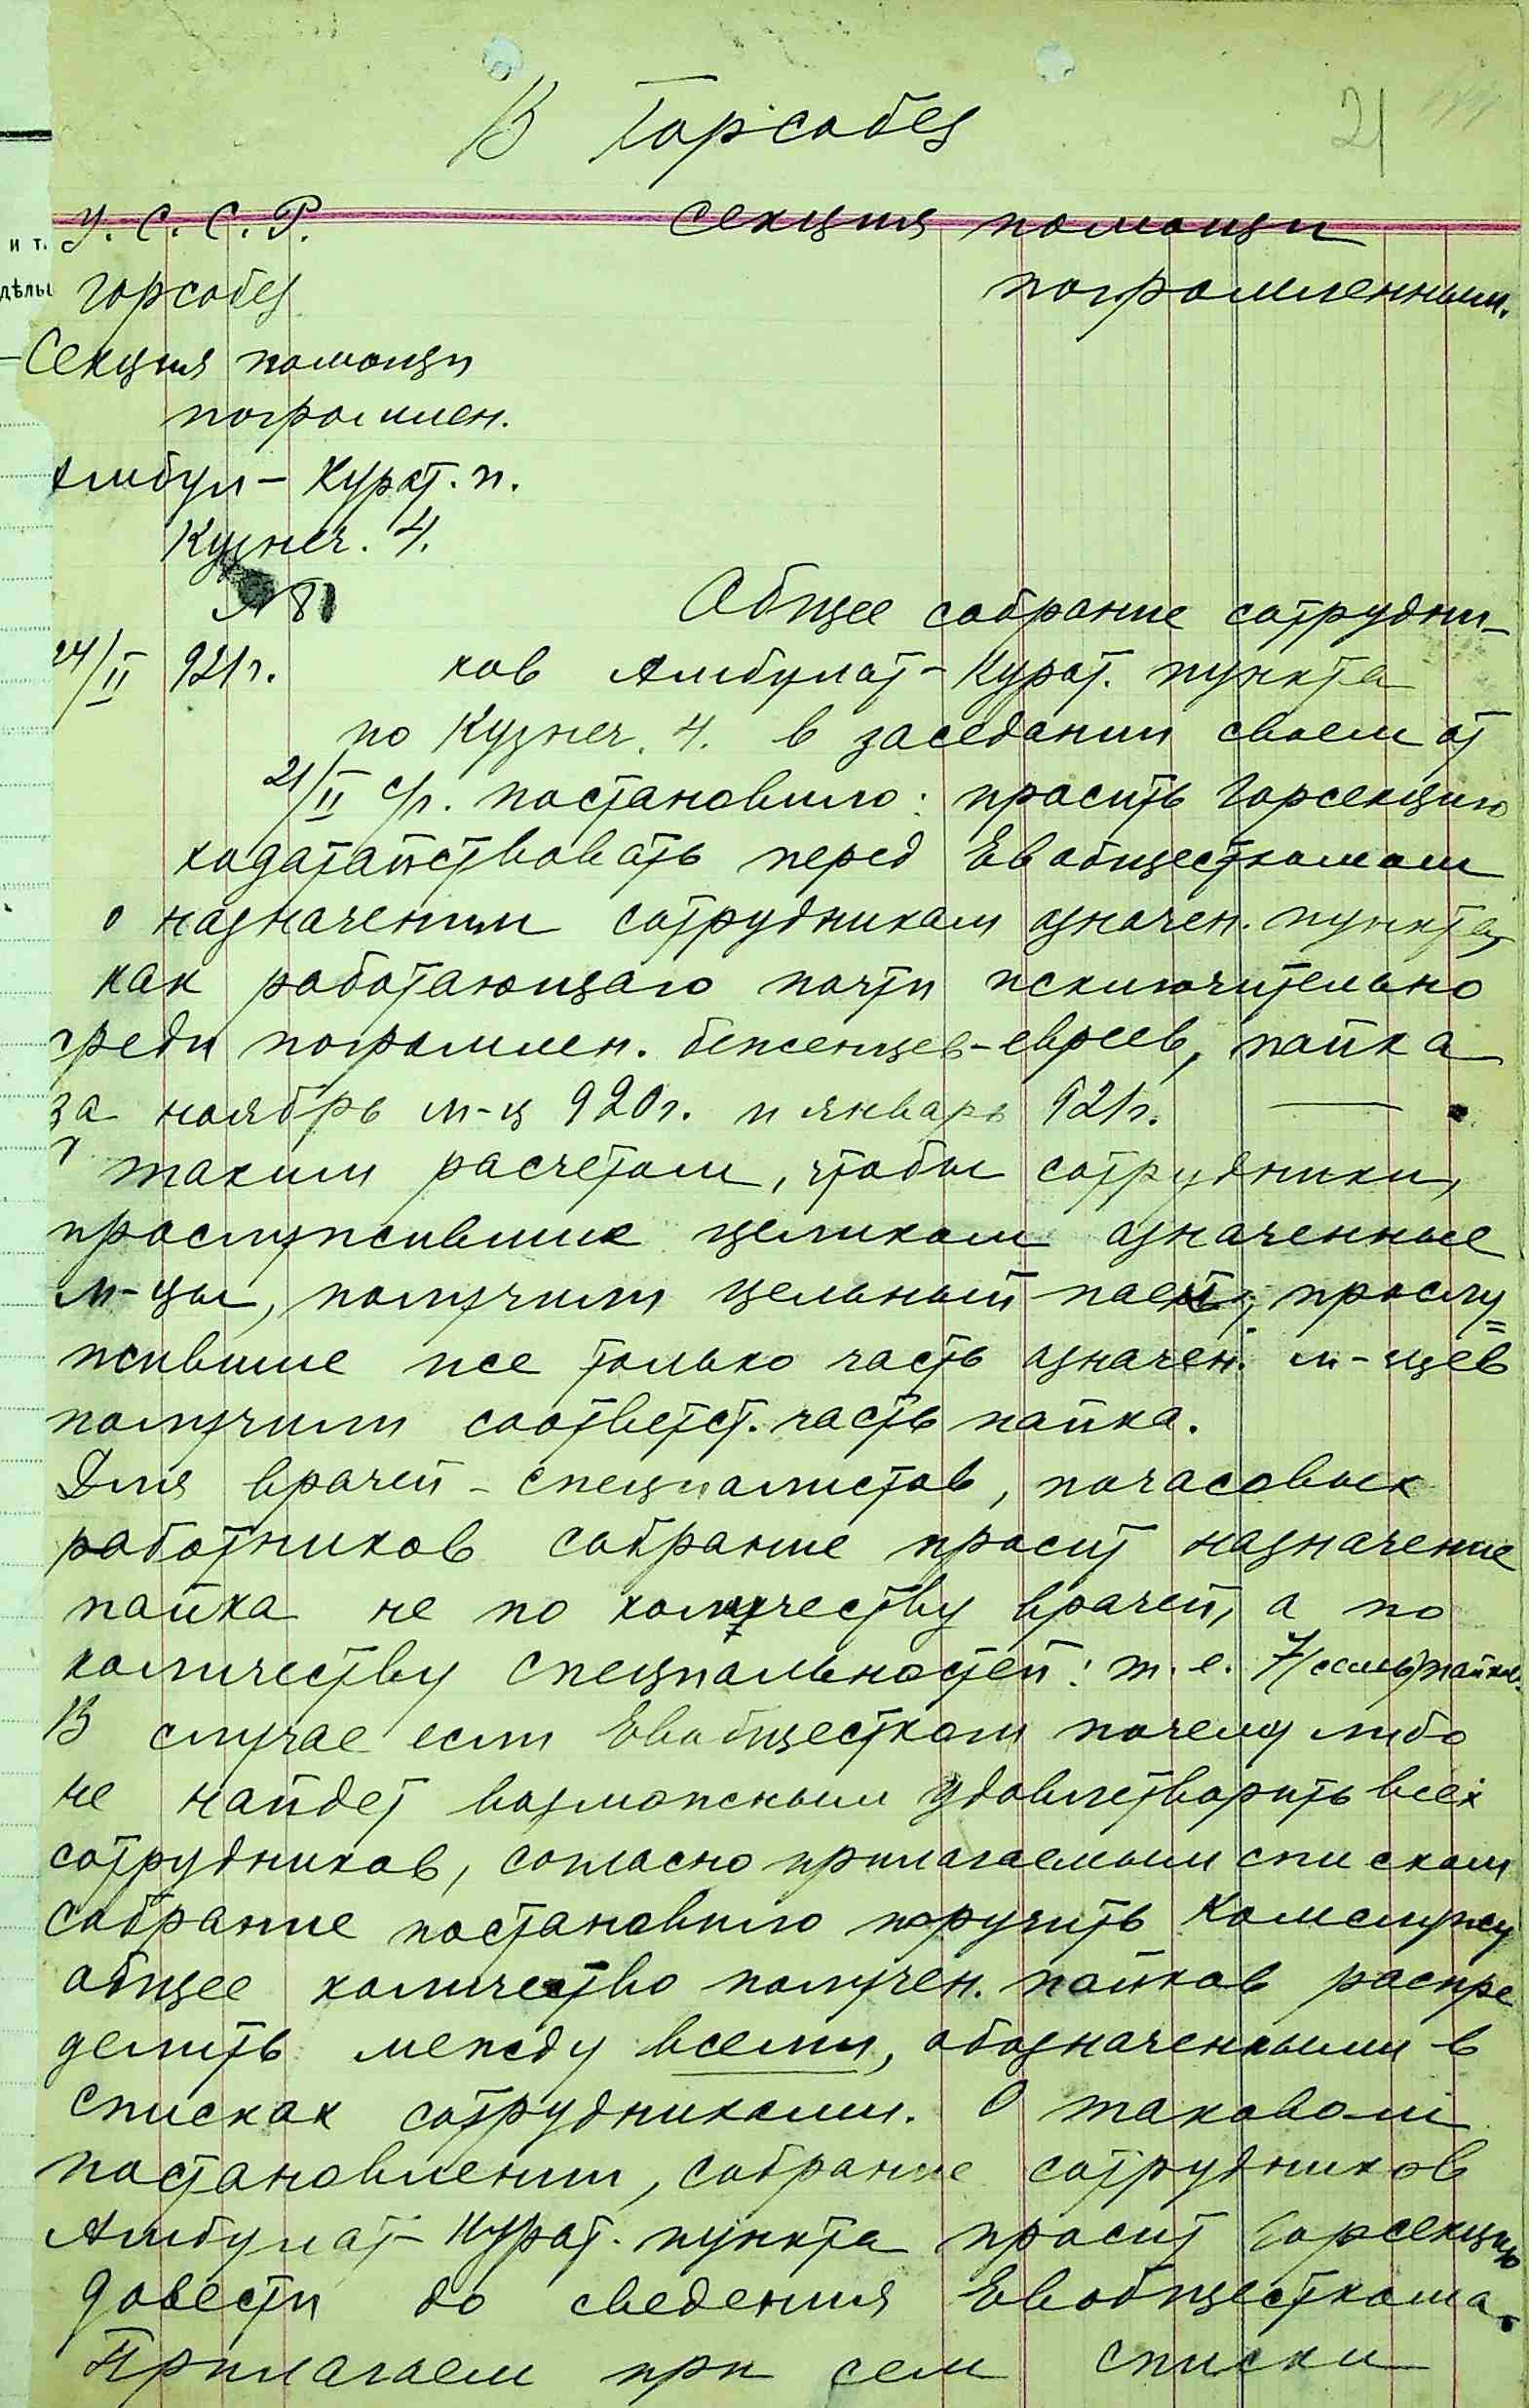 21
В Горсобез
У. С. С. Р.
Секция помощи
Горсобез
погромленным.
Секция помощи
погромлен.
Амбул - Курат. п.
Кузнеч. 4.
№ 81
Общее собрание сотрудни-
24/II 921 г.
ков Амбулат - Курат. пункта
по Кузнеч. 4. в заседании своем от
21/II с/г. постановило: просить Горсекцию
ходатайствовать перед Евобщесткомом
о назначении сотрудникам означен. пункта,
как работающаго почти исключительно
среди погромлен. беженцев-евреев, пайка
за ноябрь м-ц 920 г. и январь 921 г. —
с таким расчетом, чтобы сотрудники,
прослужившие целиком означенные
м-цы, получили цельный паек; прослу=
жившие же только часть означен. м-цев
получили соответст. часть пайка.
Для врачей - специалистов, почасовых
работников собрание просит назначение
пайка не по количеству врачей, а по
количеству специальностей: т. е. 7/семь/пайков.
В случае если Евобщестком почему либо
не найдет возможным удовлетворить всех
сотрудников, согласно прилагаемым спискам
собрание постановило поручить Комслужу
общее количество получен. пайков распре
делить между всеми, обозначенными в
списках сотрудниками. О таковом
постановлении, собрание сотрудников
Амбулат - Курат. пункта просит Горсекцию
довести до сведения Евобщесткома.
Прилагаем при сем списки
и т.
дѣлы